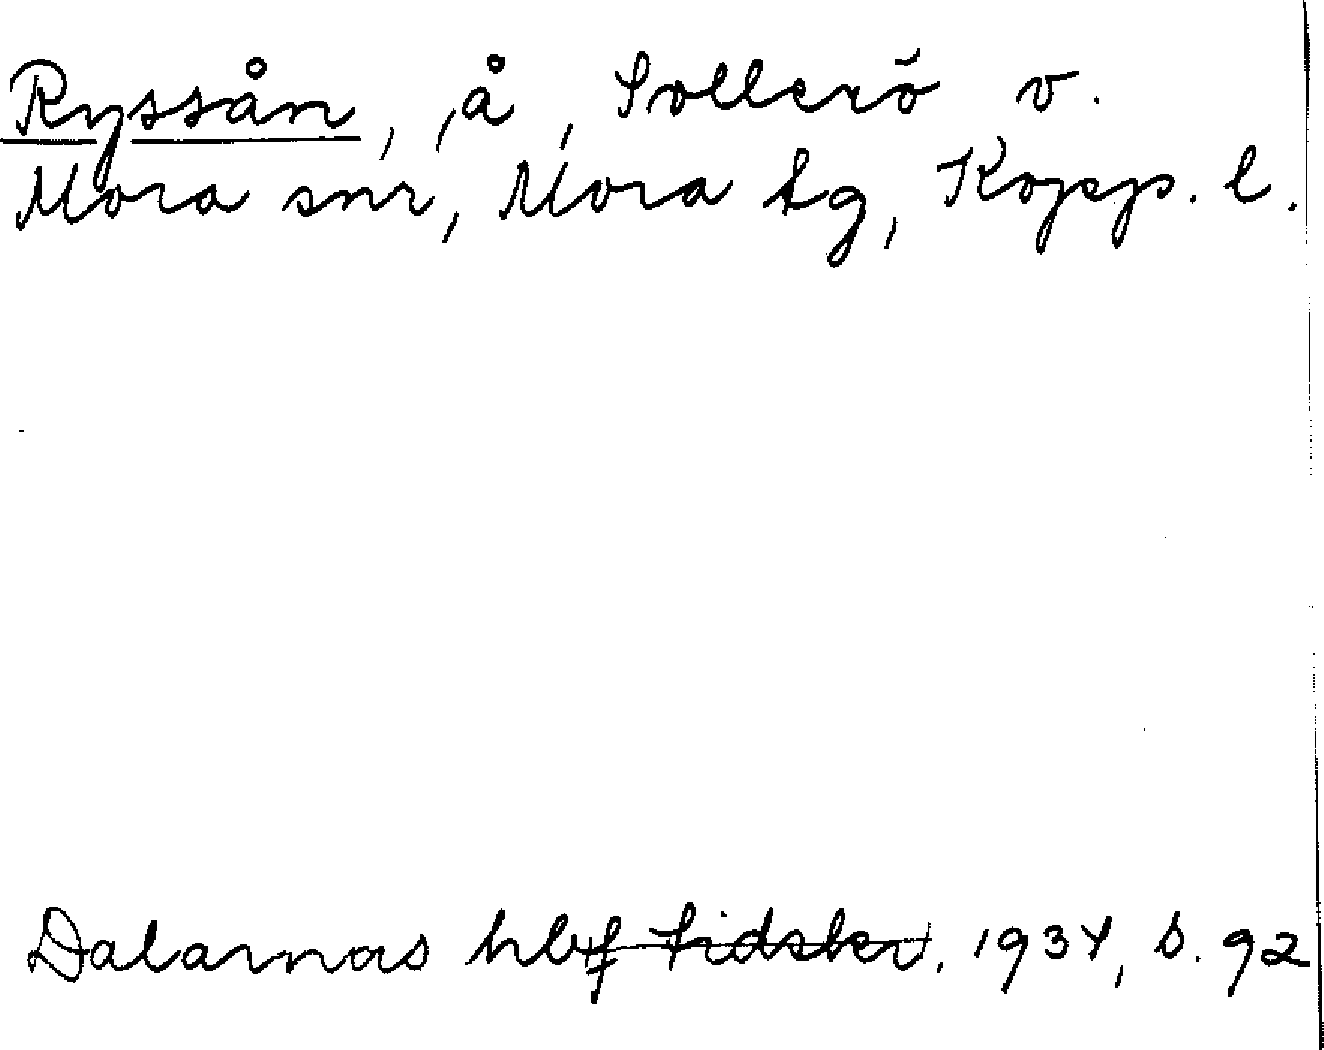 Ryssån, å, Sollerö v.
Mora snr, Mora tg, Kopp. l.
Dalarnas hbf tidskr. 1937, s. 92